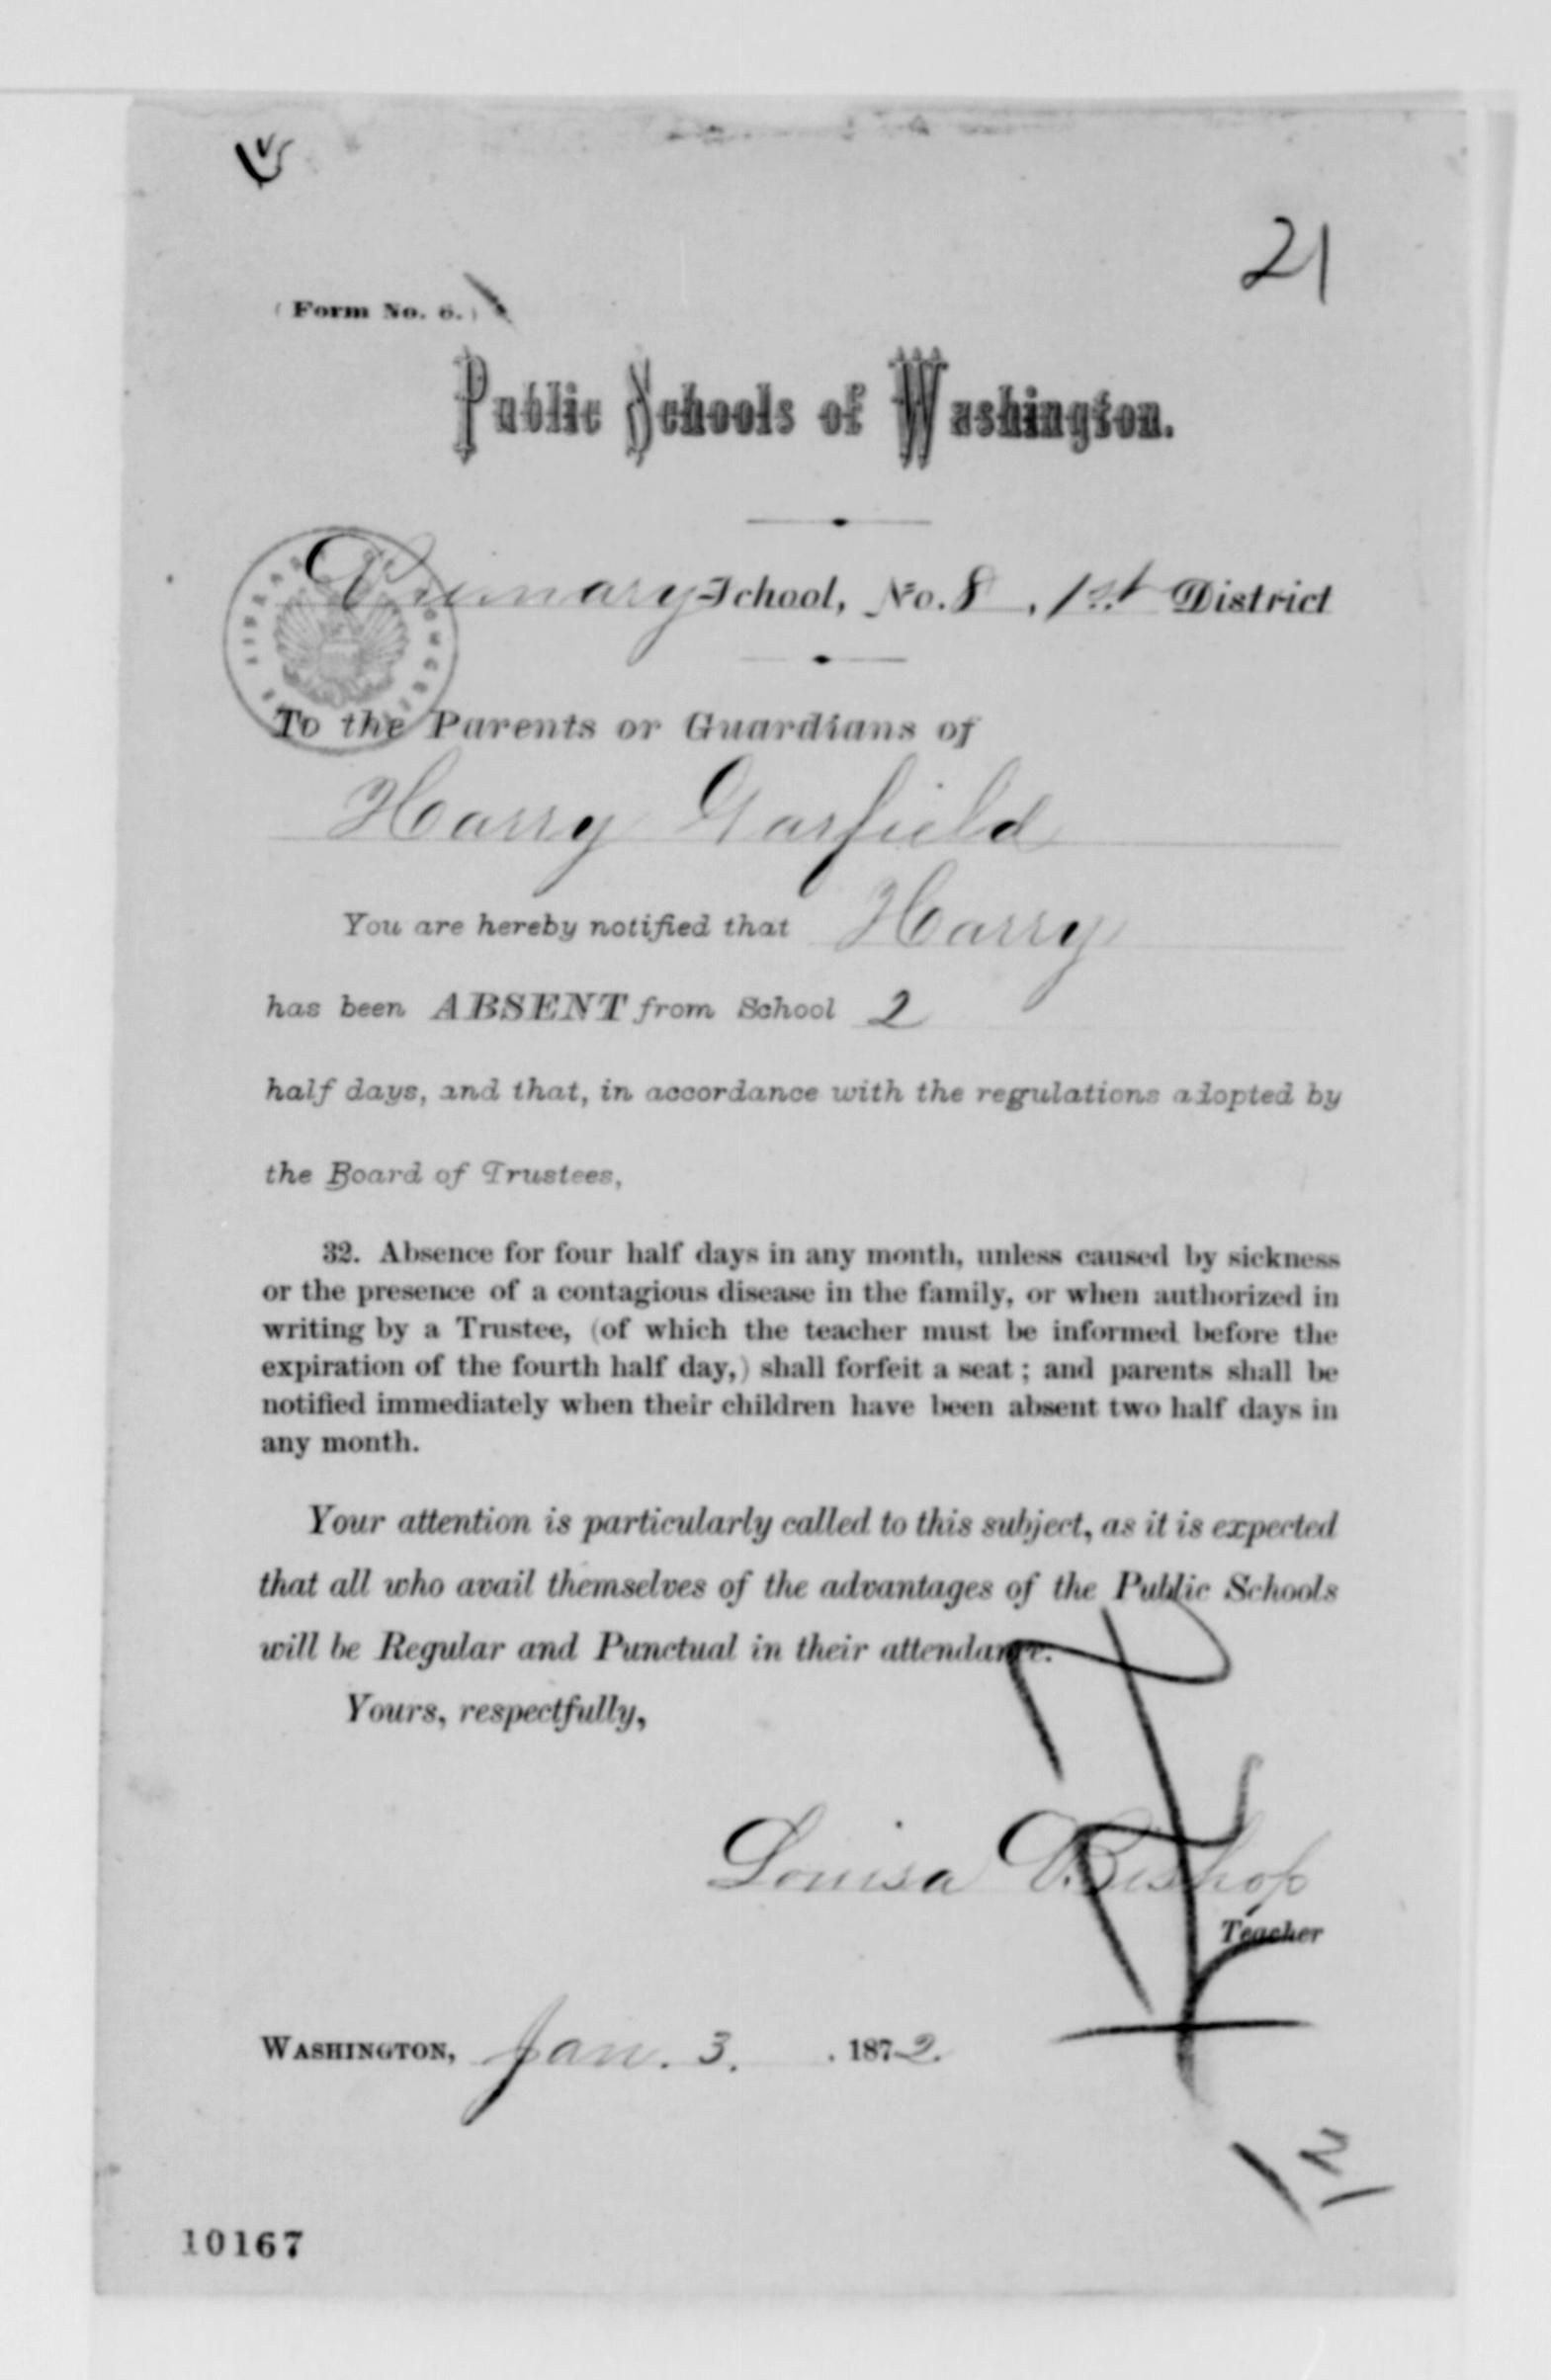 21
(Form No. 6.)
Public Schools of Washington.
Primary School, No. 8, 1st District
To the Parents or Guardians of
Harry Garfield
You are hereby notified that Harry
has been ABSENT from School 2
half days, and that, in accordance with the regulations adopted by
the Board of Trustees,
32. Absence for four half days in any month, unless caused by sickness
or the presence of a contagious disease in the family, or when authorized in
writing by a Trustee, (of which the teacher must be informed before the
expiration of the fourth half day,) shall forfeit a seat; and parents shall be
notified immediately when their children have been absent two half days in
any month.
Your attention is particularly called to this subject, as it is expected
that all who avail themselves of the advantages of the Public Schools
will be Regular and Punctual in their attendance.
Yours, respectfully,
Louisa Bishop
Teacher
WASHINGTON, Jan. 3. , 1872.
10167